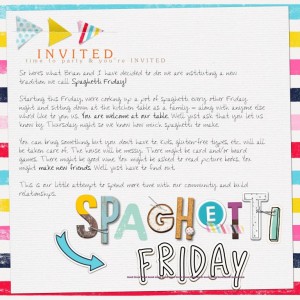 INVITED
time to party & you're INVITED
So here's what Brian and I have decided to do: we are instituting a new
tradition we call Spaghetti Friday!
Starting this Friday, we're cooking up a pot of spaghetti every other Friday
night and sitting down at the kitchen table as a family - along with anyone else
who'd like to join us. You are welcome at our table. We'll just ask that you let us
know by Thursday night so we know how much spaghetti to make.
You can bring something but you don't have to. Kids, gluten-free types, etc. will all
be taken care of. The house will be messy. There might be card and/or board
games. There might be good wine. You might be asked to read picture books. You
might make new friends. We'll just have to find out.
This is our little attempt to spend more time with our community and build
relationships.
SPAGHETTI
FRIDAY